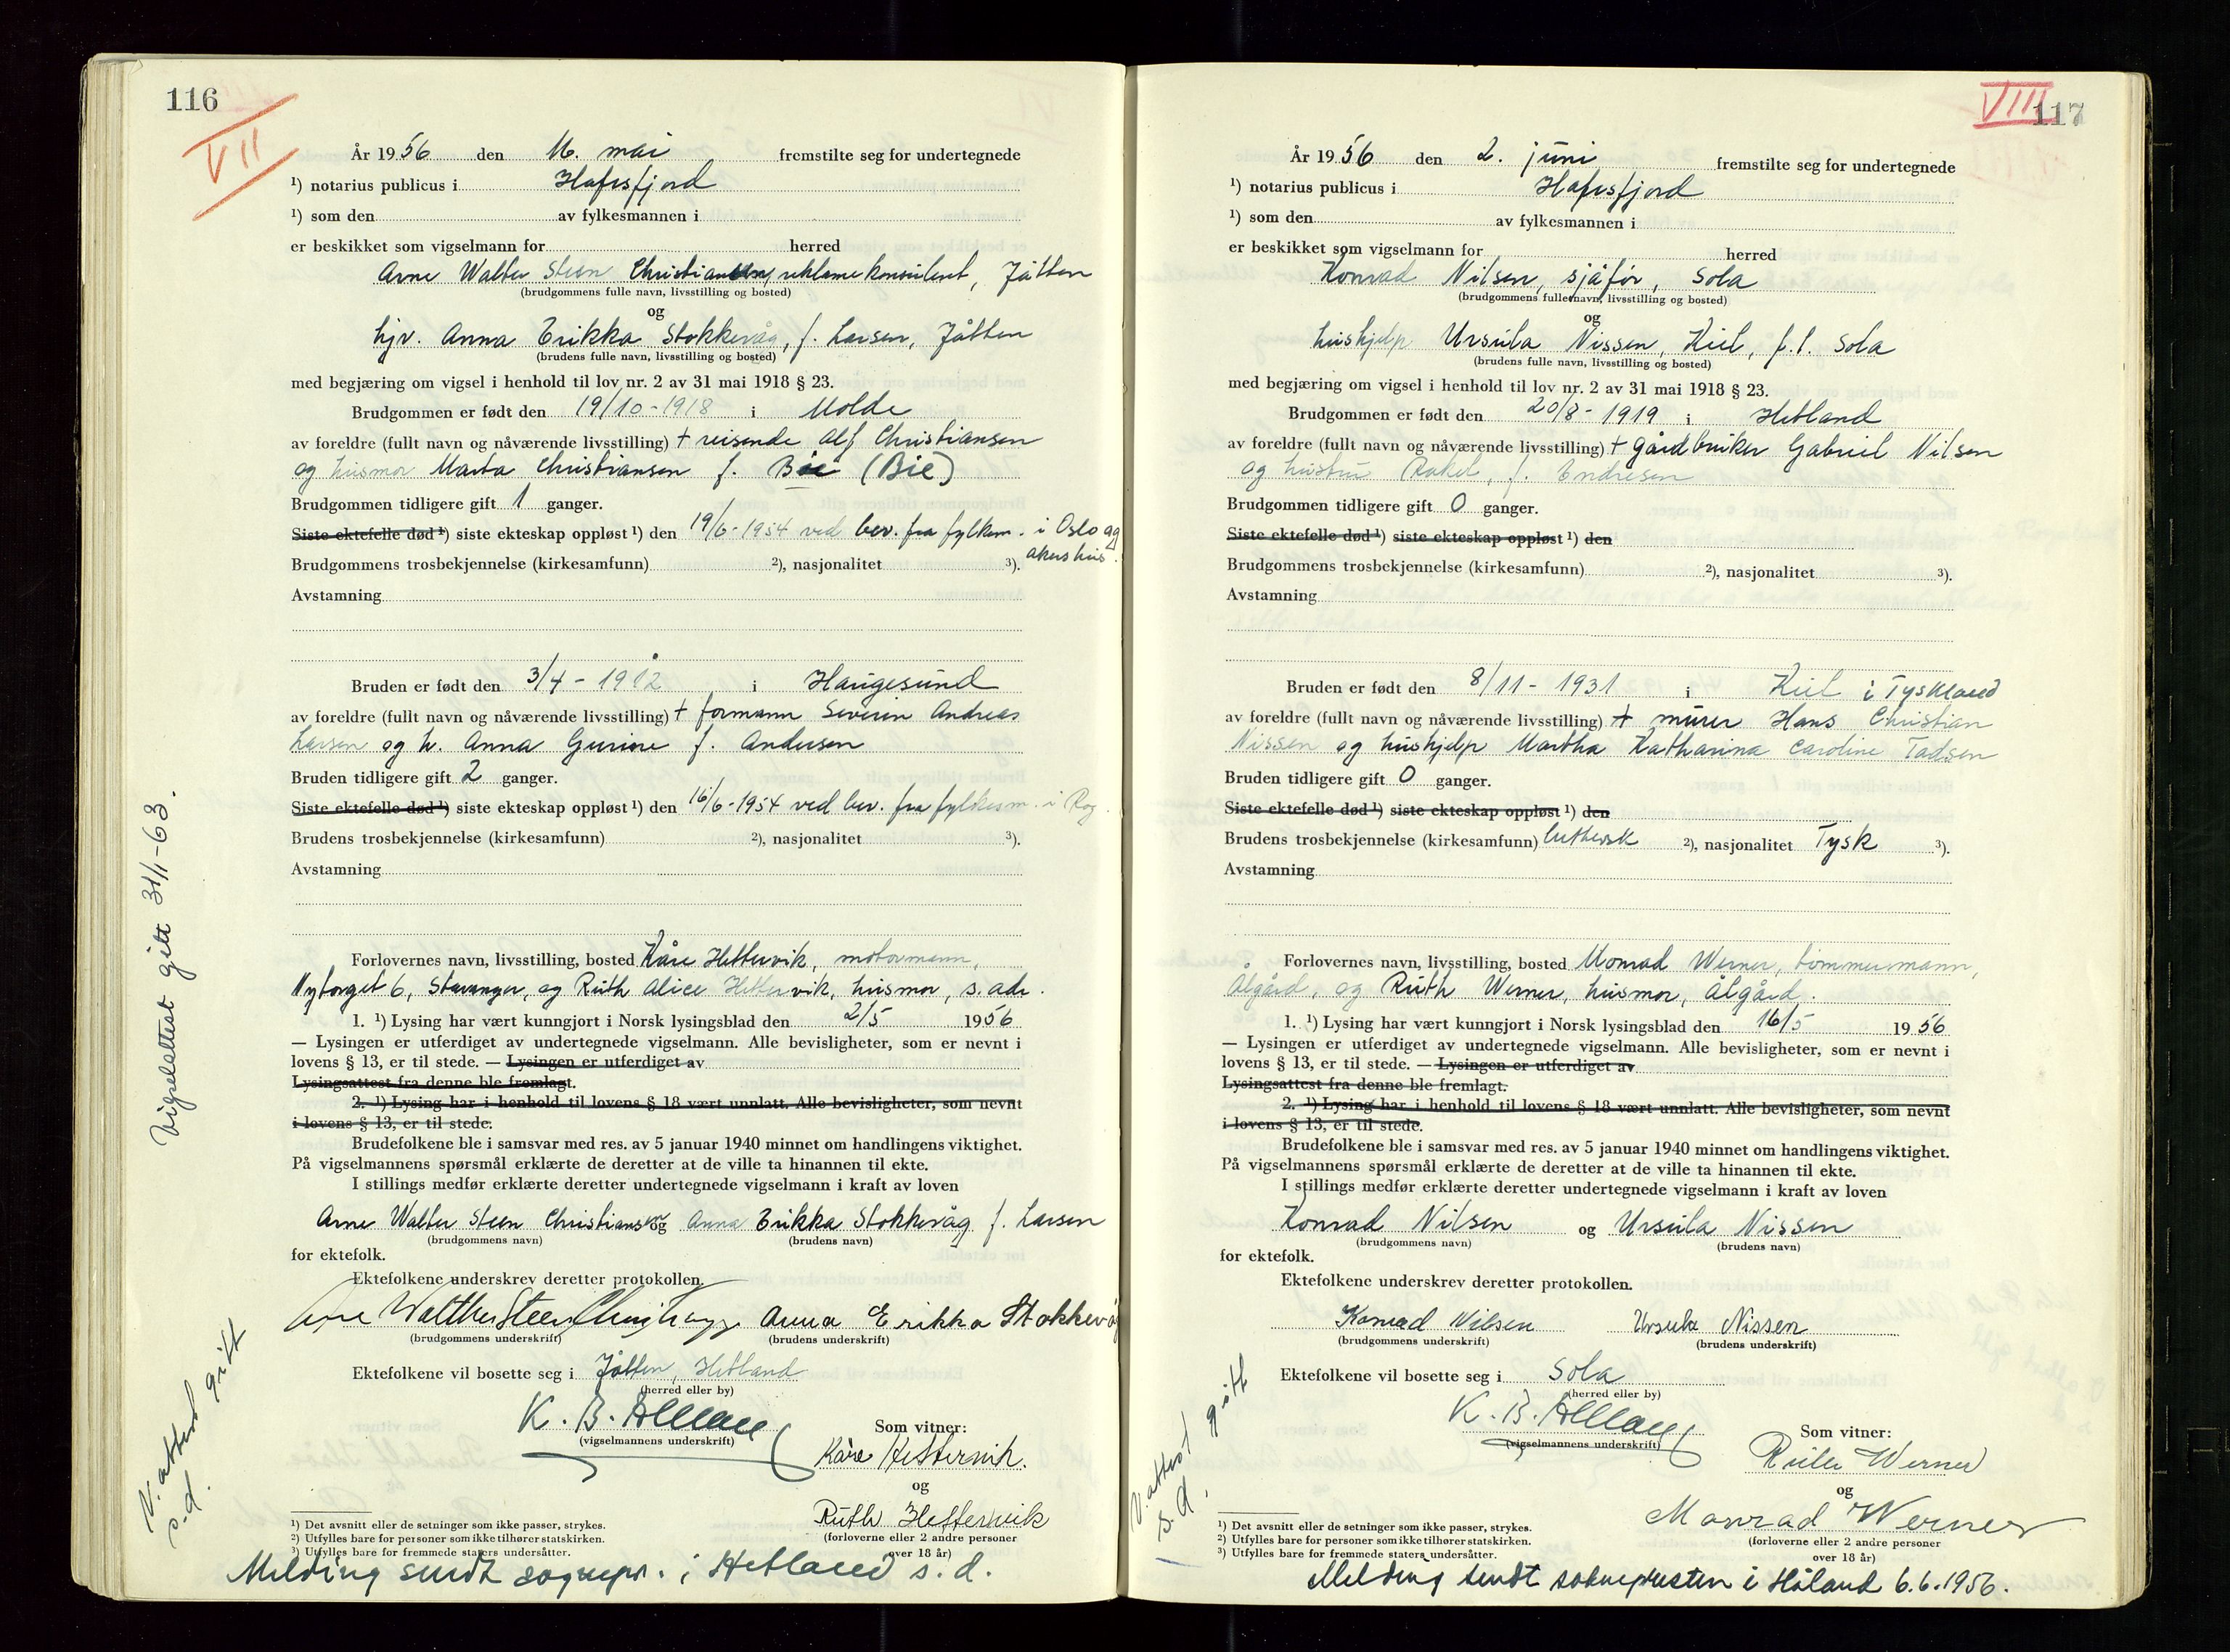 116
VII
År 1956 den 16. mai fremstilte seg for undertegnede
¹) notarius publicus i Hafrsfjord
¹) som den av fylkesmannen i
er beskikket som vigselmann for herred
Arne Walter Steen Christiansen, reklamekonsulent, Jåtten
(brudgommens fulle navn, livsstilling og bosted)
og
hjv. Anna Erikka Stokkevåg, f. Larsen, Jåtten
(brudens fulle navn, livsstilling og bosted)
med begjæring om vigsel i henhold til lov nr. 2 av 31 mai 1918 § 23.
Brudgommen er født den 19/10 - 1918 i Molde
av foreldre (fullt navn og nåværende livsstilling) + reisende Alf Christiansen
og husmor Marta Christiansen f. Bie (Bie)
Brudgommen tidligere gift 1 ganger.
Siste ektefelle død ¹) siste ekteskap oppløst ¹) den 19/6-1954 ved bev. fra fylkesm. i Oslo og
Akershus.
Brudgommens trosbekjennelse (kirkesamfunn) ²), nasjonalitet ³).
Avstamning
Bruden er født den 3/4 - 1912 i Haugesund
av foreldre (fullt navn og nåværende livsstilling) + formann Severin Andreas
Larsen og h. Anna Gurine f. Andersen
Bruden tidligere gift 2 ganger.
Siste ektefelle død ¹) siste ekteskap oppløst ¹) den 16/6-1954 ved bev. fra fylkesm. i Rog.
Brudens trosbekjennelse (kirkesamfunn) ²), nasjonalitet ³).
Avstamning
Forlovernes navn, livsstilling, bosted Kåre Hettervik, motormann,
Nytorget 6, Stavanger, og Ruth Alice Hettervik, husmor, s. adr.
1. ¹) Lysing har vært kunngjort i Norsk lysingsblad den 2/5 1956
— Lysingen er utferdiget av undertegnede vigselmann. Alle bevisligheter, som er nevnt i
lovens § 13, er til stede. — Lysingen er utferdiget av
Lysingsattest fra denne ble fremlagt.
2. ¹) Lysing har i henhold til lovens § 18 vært unnlatt. Alle bevisligheter, som nevnt
i lovens § 13, er til stede.
Brudefolkene ble i samsvar med res. av 5 januar 1940 minnet om handlingens viktighet.
På vigselmannens spørsmål erklærte de deretter at de ville ta hinannen til ekte.
I stillings medfør erklærte deretter undertegnede vigselmann i kraft av loven
Arne Walter Steen Christiansen og Anna Erikka Stokkevåg f. Larsen
(brudgommens navn) (brudens navn)
for ektefolk.
Ektefolkene underskrev deretter protokollen.
Arne Walther Steen Christiansen Anna Erikka Stokkevåg
(brudgommens underskrift) (brudens underskrift)
Ektefolkene vil bosette seg i Jåtten, Hetland
(herred eller by)
K. B.
(vigselmannens underskrift)
Som vitner:
Kåre Hettervik.
og
Ruth Hettervik
(forloverne eller 2 andre personer
over 18 år)
¹) Det avsnitt eller de setninger som ikke passer, strykes.
²) Utfylles bare for personer som ikke tilhører statskirken.
³) Utfylles bare for fremmede staters undersåtter.
Melding sendt sognepr. i Hetland s. d.
Vigselattest gitt 31/1-63.
V. attest gitt
s. d.
VIII
117
År 1956 den 2. juni fremstilte seg for undertegnede
¹) notarius publicus i Hafrsfjord
¹) som den av fylkesmannen i
er beskikket som vigselmann for herred
Konrad Nilsen, sjåfør, Sola
(brudgommens fulle navn, livsstilling og bosted)
og
hushjelp Ursula Nissen, Kiel, f.t. Sola
(brudens fulle navn, livsstilling og bosted)
med begjæring om vigsel i henhold til lov nr. 2 av 31 mai 1918 § 23.
Brudgommen er født den 20/8 - 1919 i Hetland
av foreldre (fullt navn og nåværende livsstilling) + gårdbruker Gabriel Nilsen
og hustru Rakel, f. Endresen
Brudgommen tidligere gift 0 ganger.
Siste ektefelle død ¹) siste ekteskap oppløst ¹) den
Brudgommens trosbekjennelse (kirkesamfunn) ²), nasjonalitet ³).
Avstamning
Bruden er født den 8/11 - 1931 i Kiel i Tyskland
av foreldre (fullt navn og nåværende livsstilling) + murer Hans Christian
Nissen og hushjelp Martha Katharina Caroline Tadsen
Bruden tidligere gift 0 ganger.
Siste ektefelle død ¹) siste ekteskap oppløst ¹) den
Brudens trosbekjennelse (kirkesamfunn) luthersk ²), nasjonalitet Tysk ³).
Avstamning
Forlovernes navn, livsstilling, bosted Monrad Werner, tømmermann,
Ålgård, og Ruth Werner, husmor, Ålgård.
1. ¹) Lysing har vært kunngjort i Norsk lysingsblad den 16/5 1956
— Lysingen er utferdiget av undertegnede vigselmann. Alle bevisligheter, som er nevnt i
lovens § 13, er til stede. — Lysingen er utferdiget av
Lysingsattest fra denne ble fremlagt.
2. ¹) Lysing har i henhold til lovens § 18 vært unnlatt. Alle bevisligheter, som nevnt
i lovens § 13, er til stede.
Brudefolkene ble i samsvar med res. av 5 januar 1940 minnet om handlingens viktighet.
På vigselmannens spørsmål erklærte de deretter at de ville ta hinannen til ekte.
I stillings medfør erklærte deretter undertegnede vigselmann i kraft av loven
Konrad Nilsen og Ursula Nissen
(brudgommens navn) (brudens navn)
for ektefolk.
Ektefolkene underskrev deretter protokollen.
Konrad Nilsen Ursula Nissen
(brudgommens underskrift) (brudens underskrift)
Ektefolkene vil bosette seg i Sola
(herred eller by)
K. B.
(vigselmannens underskrift)
Som vitner:
Ruth Werner
og
Monrad Werner
(forloverne eller 2 andre personer
over 18 år)
¹) Det avsnitt eller de setninger som ikke passer, strykes.
²) Utfylles bare for personer som ikke tilhører statskirken.
³) Utfylles bare for fremmede staters undersåtter.
Melding sendt soknepresten i Håland 6.6.1956.
V. attest gitt
s. d.